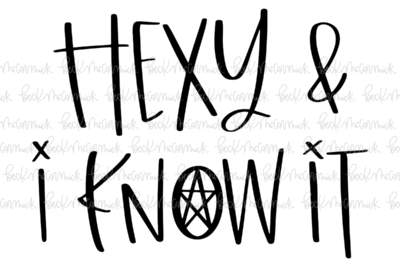 HEXY &
i KNOW iT